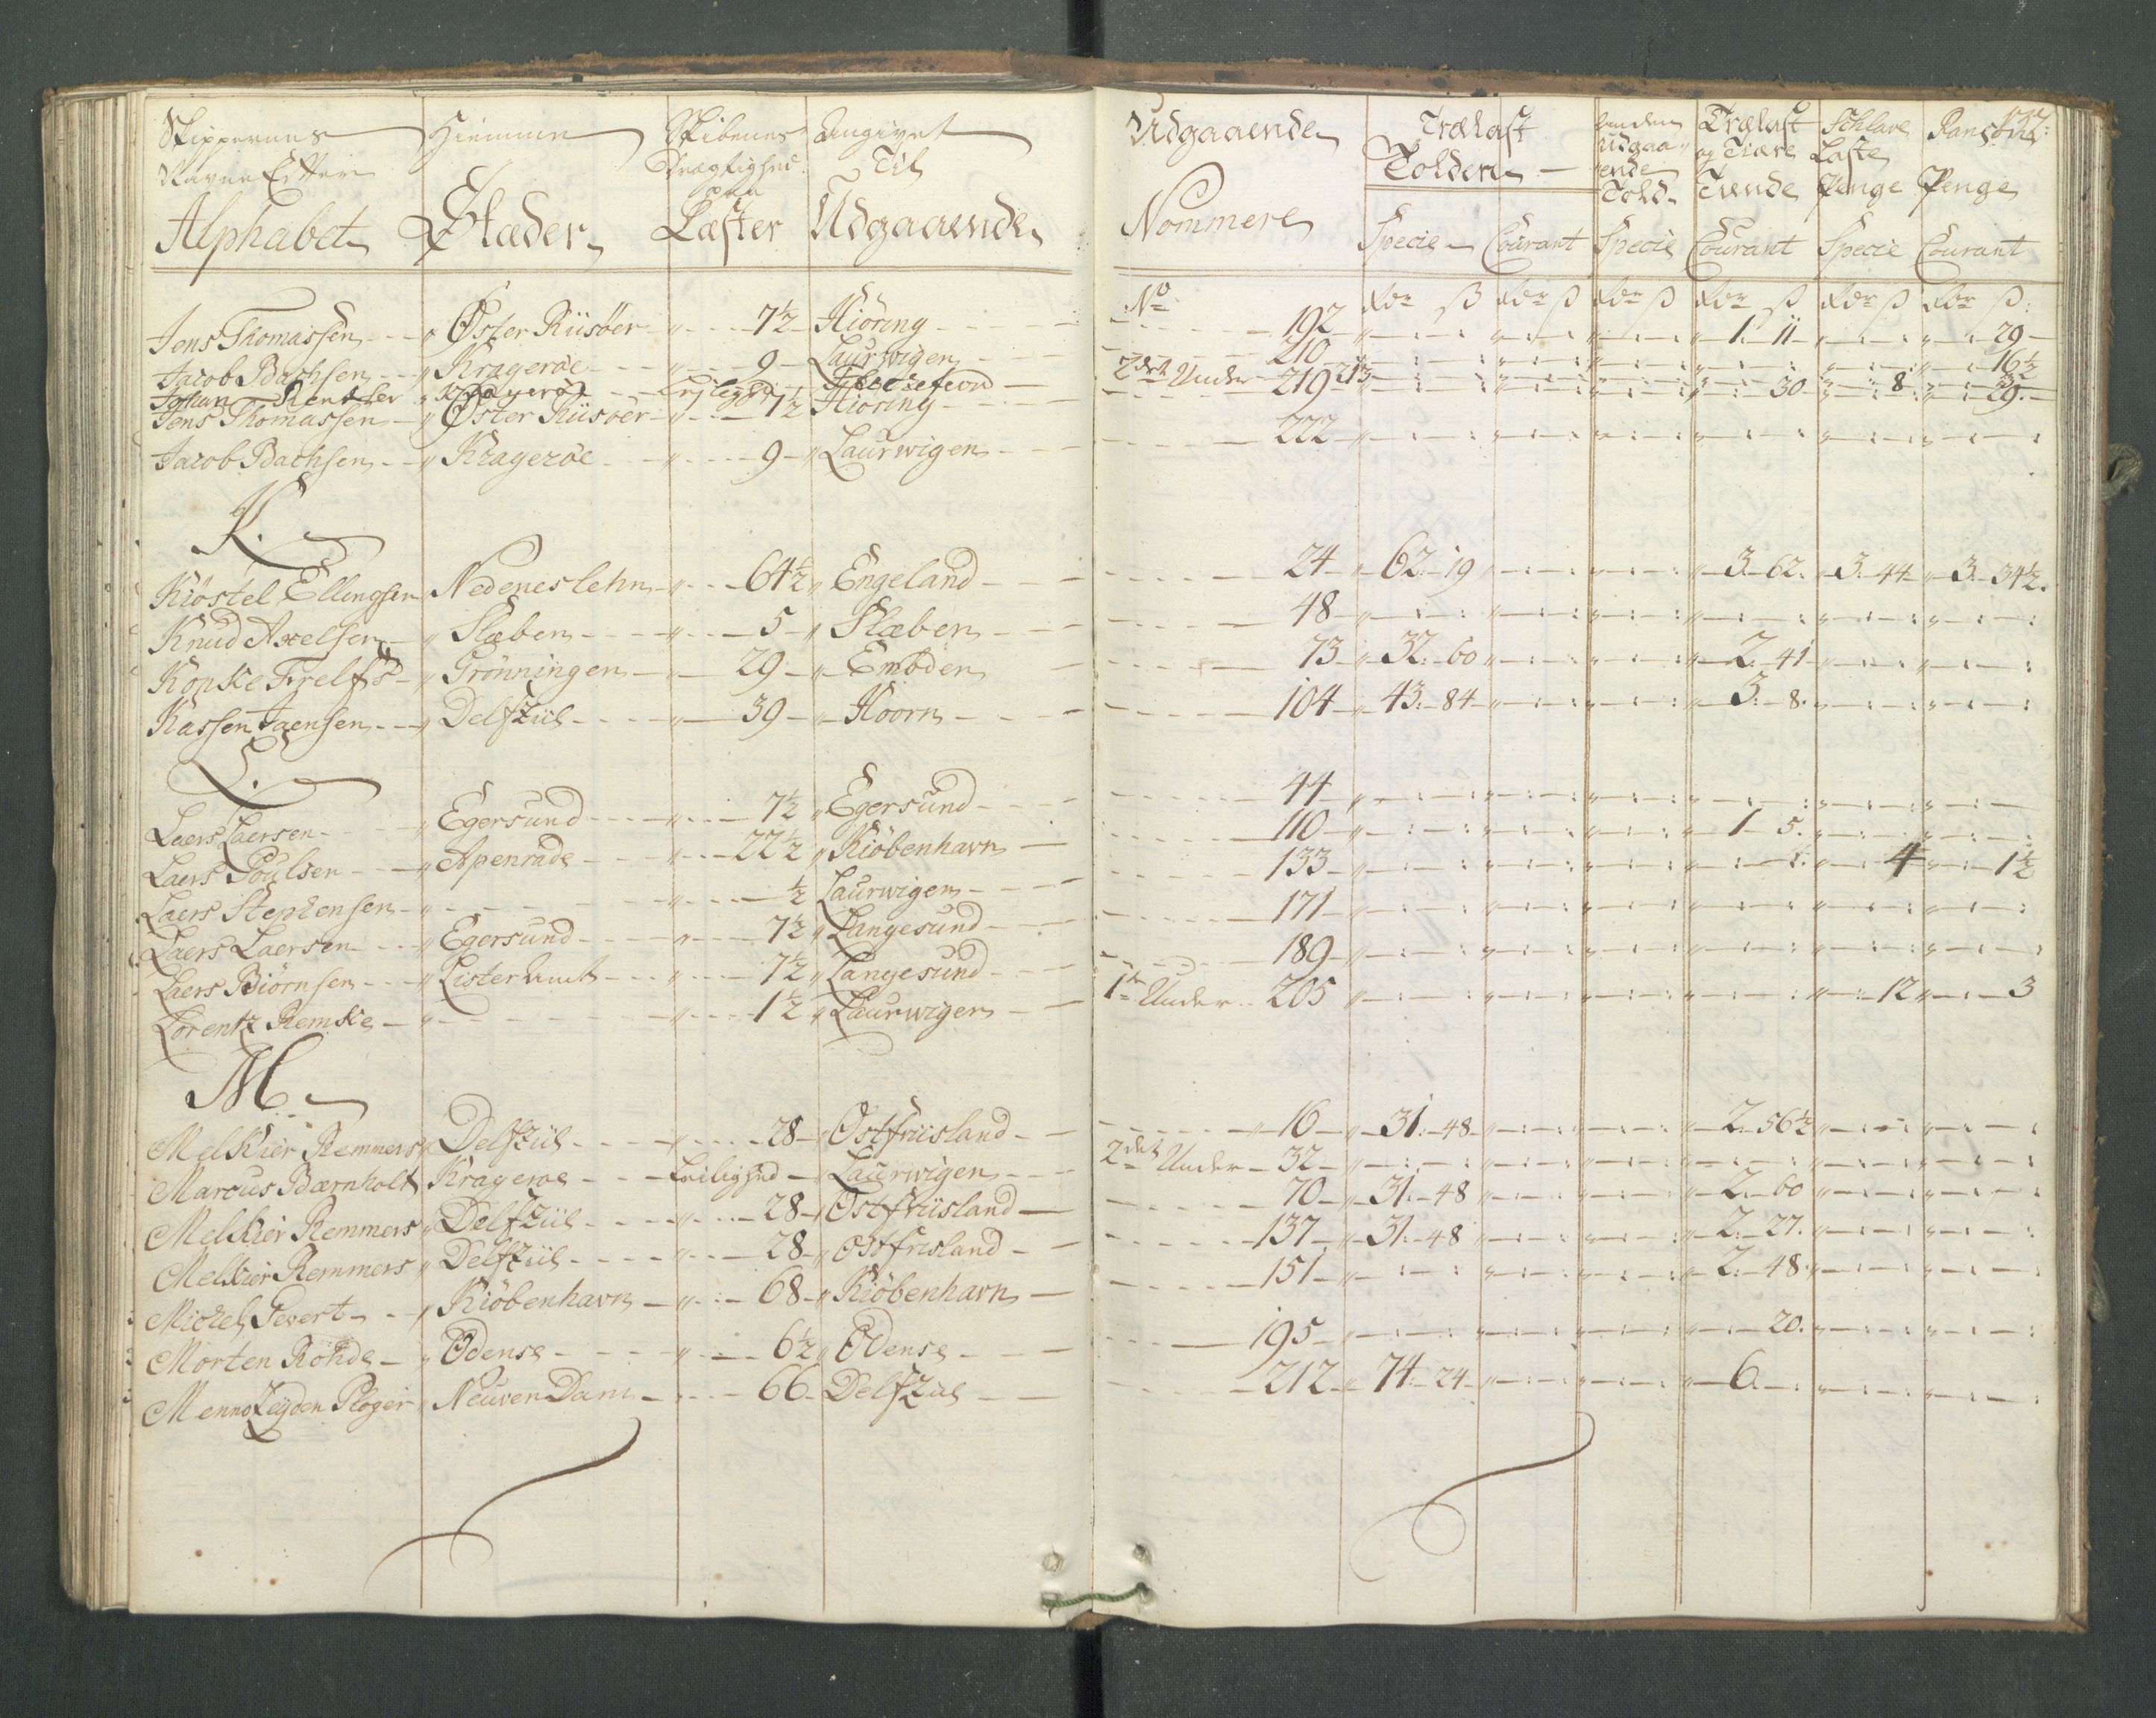 Skippernes Hiemme Skibenes Angivet
Navne Efter Drægtighed Til
Alphabet Stæder Læster Udgaaende
Jens Thomassen " Øster Riisöer " 7½ Hiöring
Jacob Bachsen " Kragerøe " 9 Laurwigen
Johan Kragerøe
Jens Thomassen " Øster Riisöer " 7½ Hiöring
Jacob Bachsen " Kragerøe " 9 " Laurwigen
K.
Kiöstel Ellingsen Nedenes lehn " 64½ " Engeland
Knud Axelsen " Flæben " 5 " Flæben
Kopke Frelfs " Grönningen 29 " Embden
Kassen Jaensen " Delfziil " 39 " Hoorn
L.
Laers Laersen " Egersund " 7½ " Egersund
Laers Poulsen " Apenrade " 22½ " Kiöbenhavn
Laers Stephensen " " ½ Laurwigen
Laers Laersen " Egersund " 7½ " Langesund
Laers Biörnsen " Lister Amt " 7½ " Langesund
Lorentz Remke " " 1½ " Laurwigen
M
Melkier Remmers " Delfziil " 28 " Ostfriisland
Marcus Bærnholt Krageroe Leilighed " Laurwigen
Melkier Remmers " Delfziil " 28 " Ostfriisland
Melkier Remmers " Delfziil " 28 " Ostfrisland
Michel Gevert " Kiöbenhavn " 68 " Kiöbenhavn
Morten Rohde " Odense " 6½ " Odense
Menno Zeyden Ploger " Neuwen Dam 66 Delfziil
Udgaaende Trælast Udgaa- Trælast Schlave Ransons
Tolden ende og Tiære Laste
Nommere Told Tiende Penge Penge
Specie Courant Specie Courant Specie Courant
No Rdr ß Rdr ß Rdr ß Rdr ß Rdr ß Rdr ß
192 1. 11 29
210 16½
2det Under 213
219 30 8 29
222
24 62. 19 3. 62. 3. 44 3. 34½.
48
73 32. 60 2. 41
104 43. 84 3. 8.
44
110 1 5.
133 4 1½
171
189
1te Under 205 12 3
16 31. 48 2. 56½
2det Under 32
70 31. 48 2. 60
137 31. 48 2. 27.
151 2. 48
195 20.
212 74. 24 6.